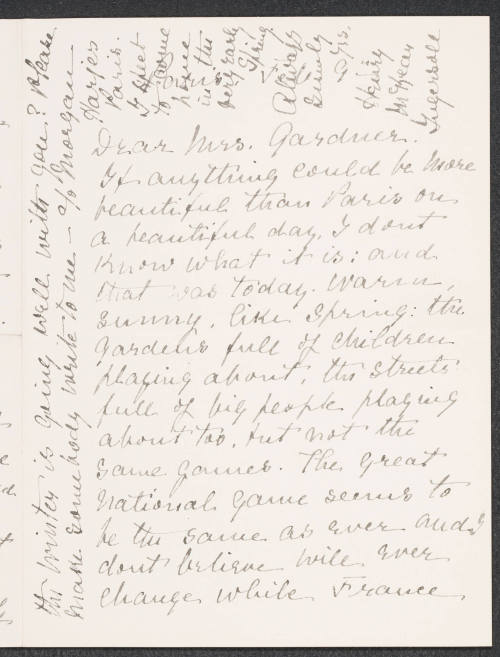 Paris
Dear Mrs. Gardner.
If anything could be more
beautiful than Paris on
a beautiful day, I dont
know what it is: and
that was today. Warm,
sunny, like Spring: the
gardens full of children
playing about, the streets
full of big people playing
about too, but not the
same games. The great
National game seems to
be the same as ever and I
dont believe will ever
change while France
this winter is going well with you? Please
make somebody write to me - c/o Morgan
Harjes
Paris.
I expect
to come
home
in the
very early
Spring
Always
Yrs.
Henry
McKean
Ingersoll